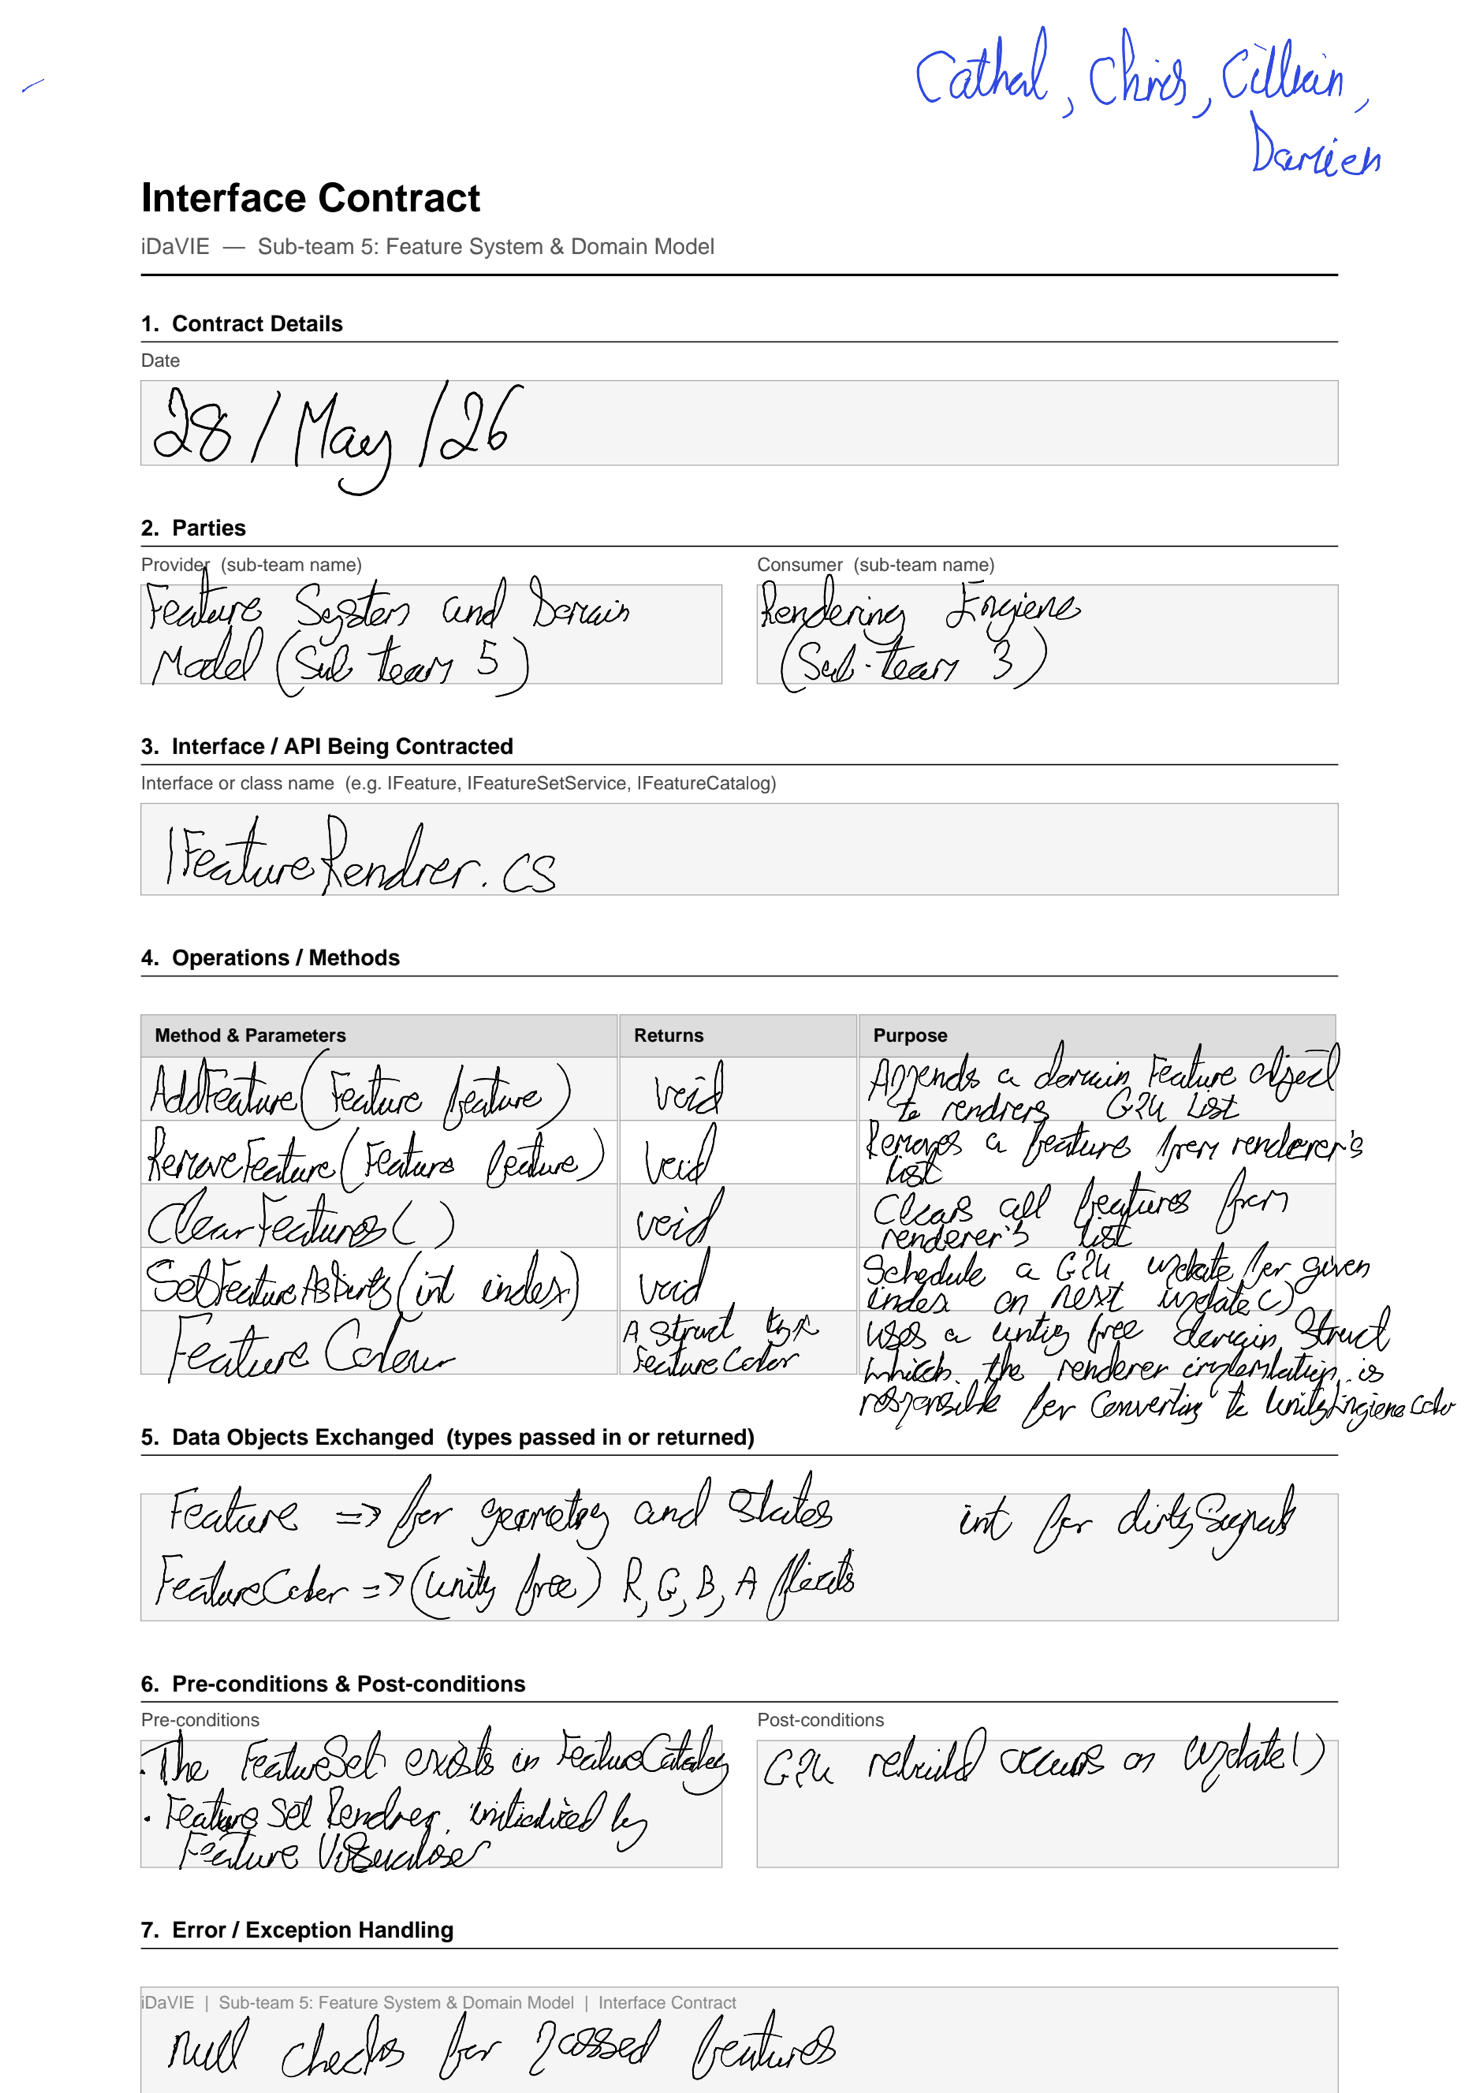 Cathal, Chris, Cillian,
Damien
Interface Contract
iDaVIE — Sub-team 5: Feature System & Domain Model
1. Contract Details
Date
28 / May / 26
2. Parties
Provider (sub-team name)
Feature System and Domain
Model (Sub team 5)
Consumer (sub-team name)
Rendering Engiene
(Sub-team 3)
3. Interface / API Being Contracted
Interface or class name (e.g. IFeature, IFeatureSetService, IFeatureCatalog)
IFeatureRendrer.cs
4. Operations / Methods
Method & Parameters Returns Purpose
AddFeature(Feature feature) void Appends a domain Feature object
to rendrers GPU list
RemoveFeature(Feature feature) void Removes a feature from renderer's
list
ClearFeatures() void Clears all features from
renderer's list
SetFeatureAsDirty(int index) void Schedule a GPU update for given
index on next update()
Feature Colour A struct type
FeatureColor
Uses a unity free domain struct
which the renderer implementation is
responsible for converting to UnityEngiene Color
5. Data Objects Exchanged (types passed in or returned)
Feature => for geometry and states int for dirty signals
FeatureColor => (unity free) R, G, B, A floats
6. Pre-conditions & Post-conditions
Pre-conditions
· The FeatureSet exists in FeatureCatalog
· Feature Set Rendrer initialized by
Feature Visualiser
Post-conditions
GPU rebuild occurs on update()
7. Error / Exception Handling
iDaVIE | Sub-team 5: Feature System & Domain Model | Interface Contract
null checks for passed features